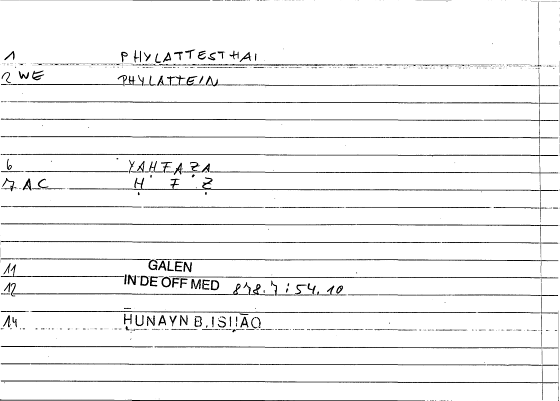 1 PHYLATTESTHAI
2 WE PHYLATTEIN
6 YAḤFAẒA
7 AC Ḥ F Ẓ
11 GALEN
12 IN DE OFF MED 878.7:54.10
14 ḤUNAYN B. ISḤĀQ